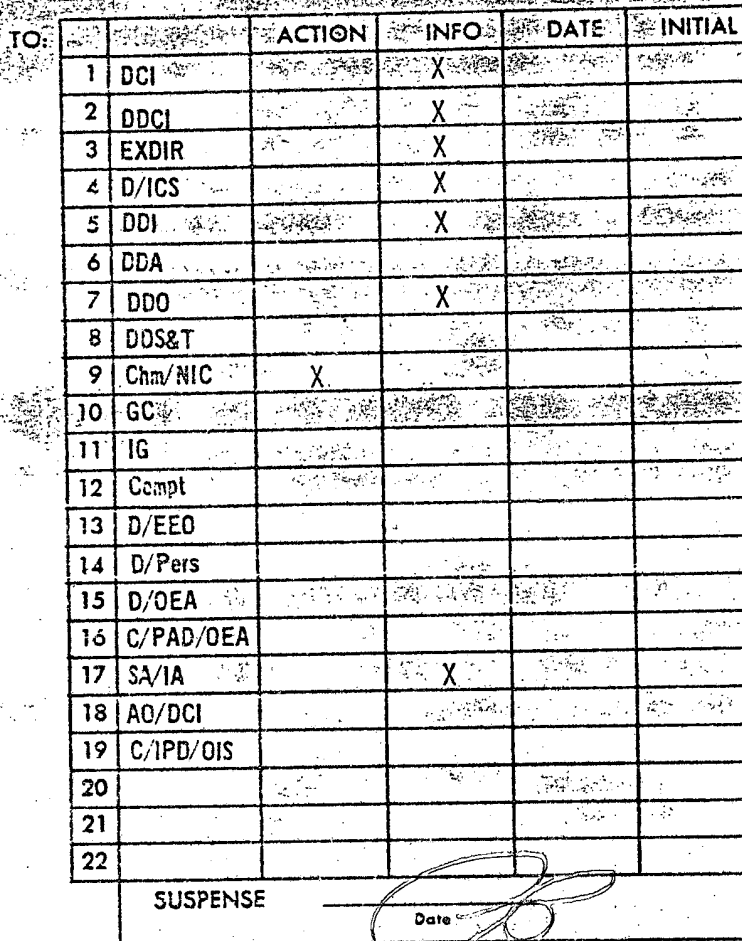 TO: ACTION INFO DATE INITIAL
1 DCI X
2 DDCI X
3 EXDIR X
4 D/ICS X
5 DDI X
6 DDA
7 DDO X
8 DDS&T
9 Chm/NIC X
10 GC
11 IG
12 Compt
13 D/EEO
14 D/Pers
15 D/OEA
16 C/PAD/OEA
17 SA/IA X
18 AO/DCI
19 C/IPD/OIS
20
21
22
SUSPENSE
Date